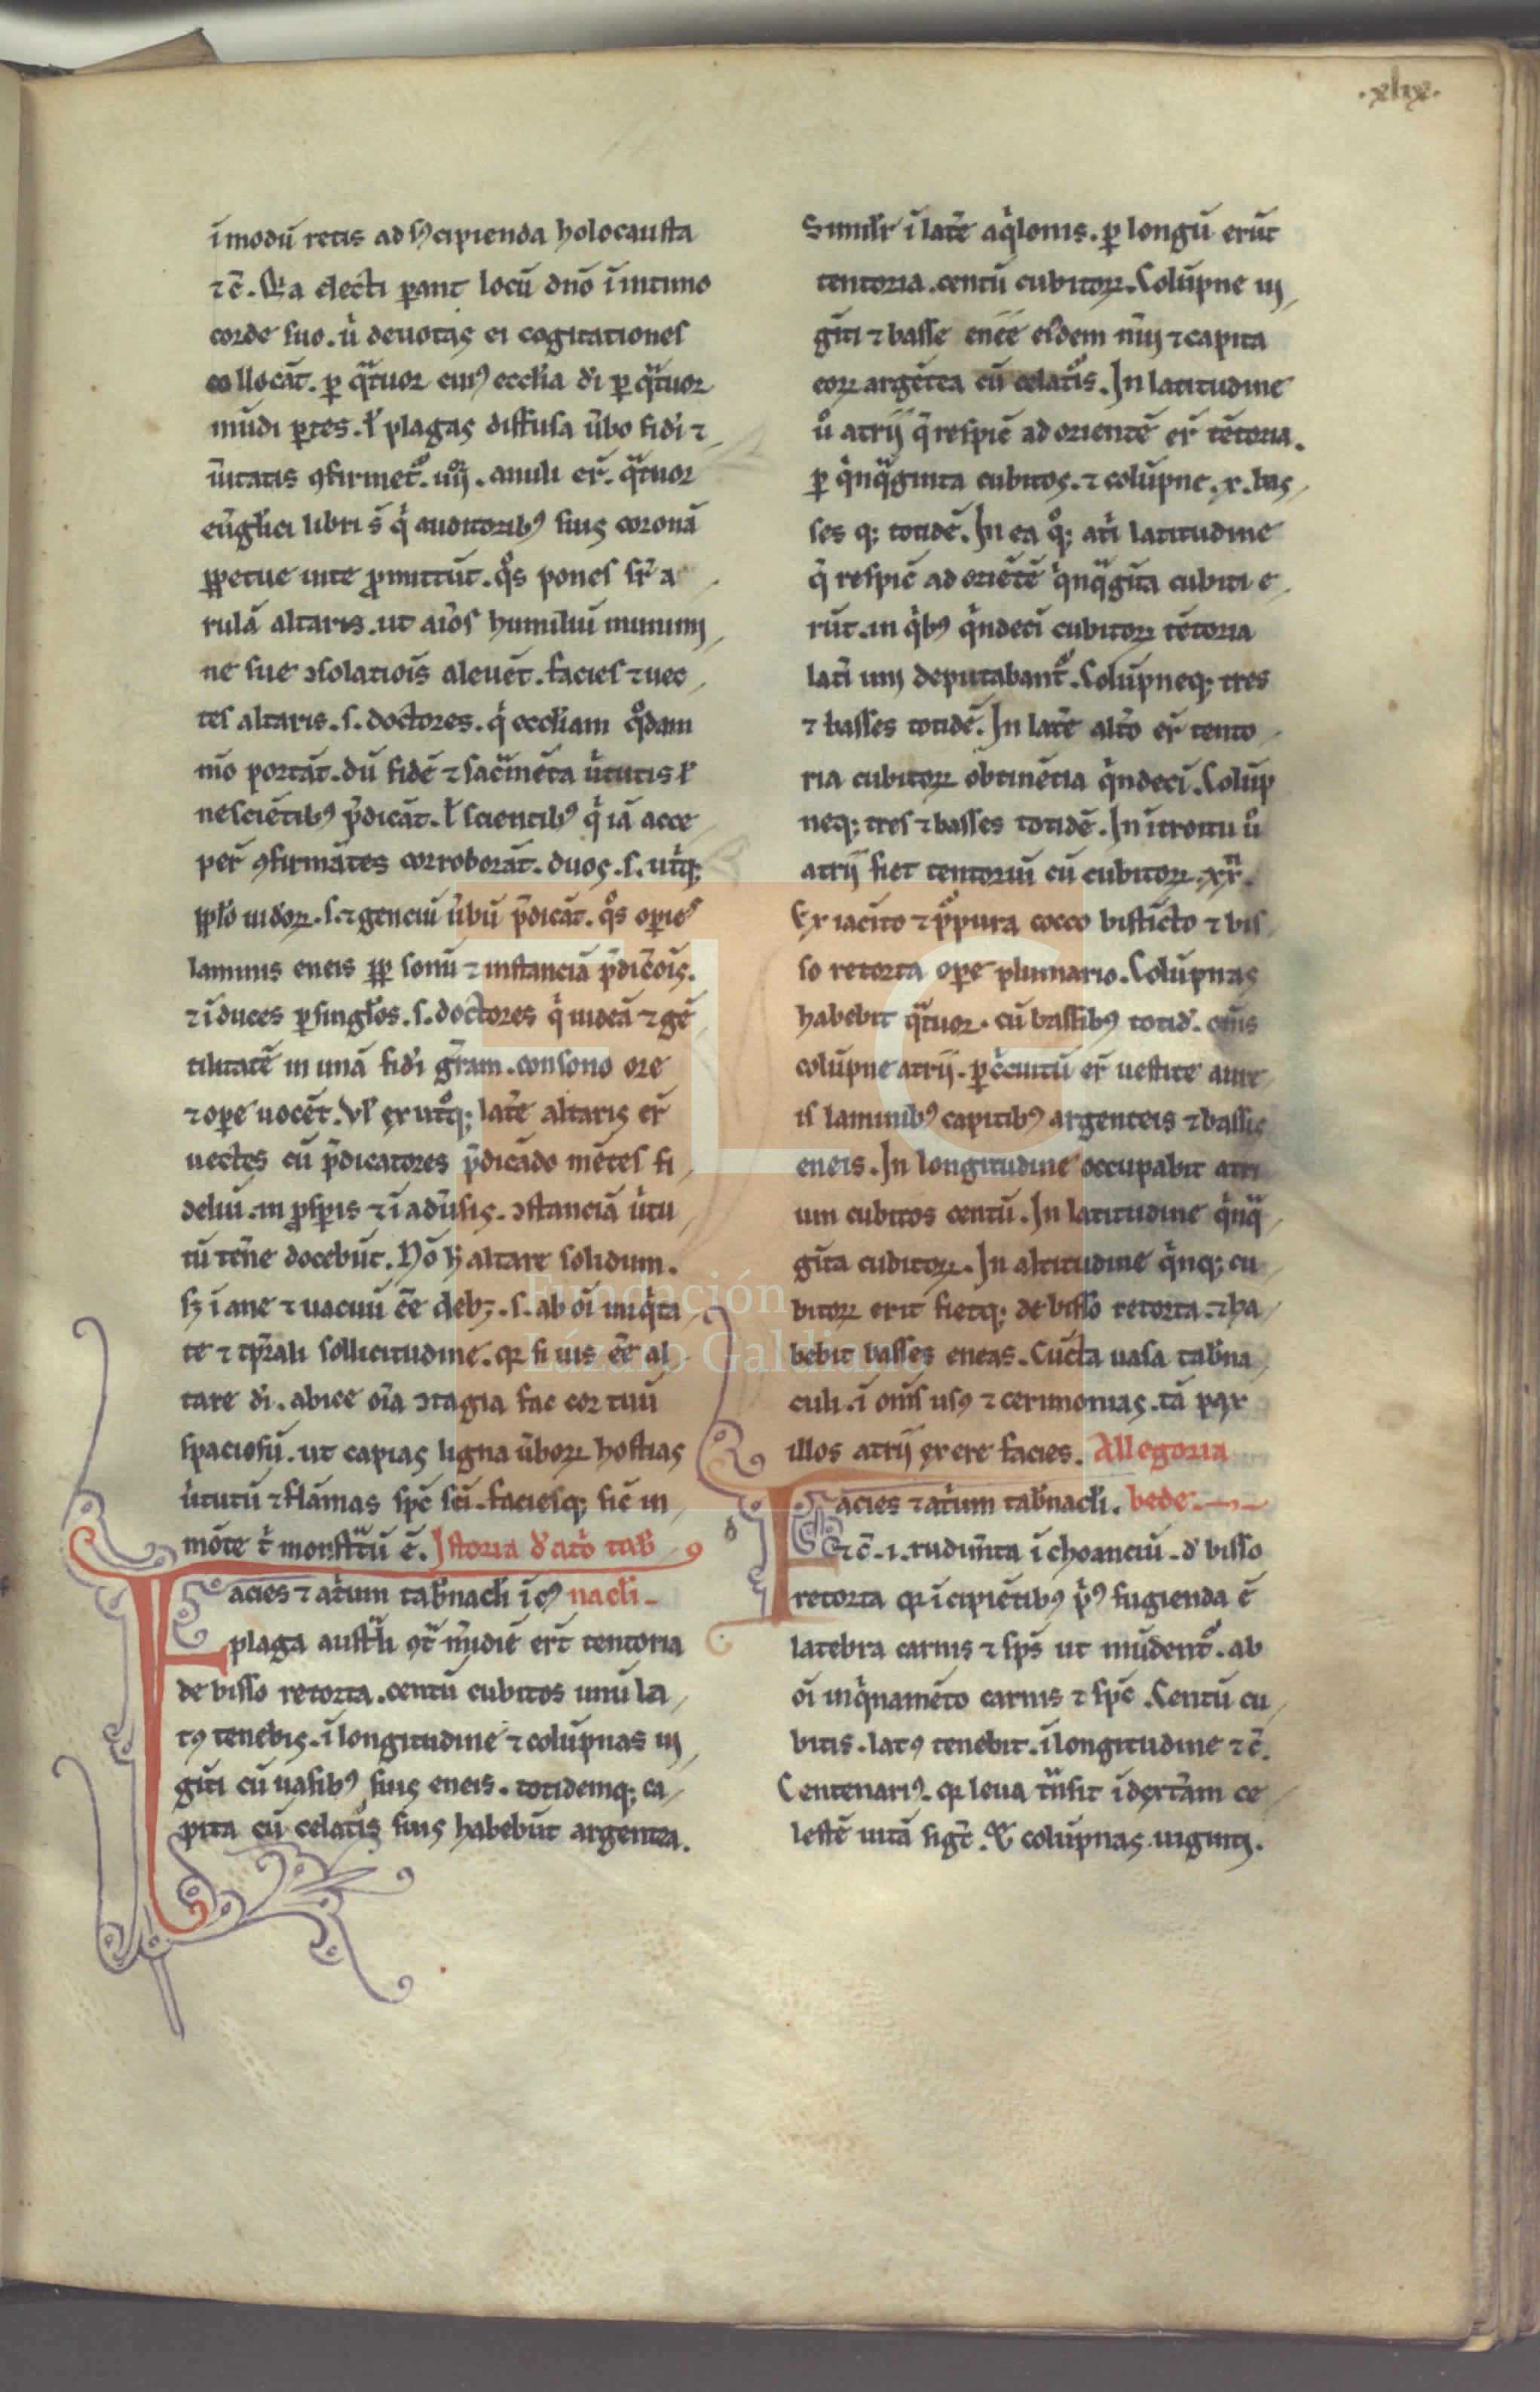 .xlix.
i modū retis ad suscipienda holocausta
⁊c̄. Q̄a electi parant locū dn̄o ī intimo
corde suo. ul̓ deuotas ei cogitationes
collocāt. ꝑ q̄tuor eniꝰ eccl̓ia di ꝑ q̄tuor
mūdi ꝑtes. l̓ plagas diffusa ūbo fidi ⁊
ū̓itatis ꝯfirmet᷑. iiij. anuli er̄. q̄tuor
eūgl̓ici libri s̄ q̓ auditoribꝰ suis coronā
ꝑpetue uite ꝓmittūt. q̊s pones sr̄ a
rulā altaris. ut aīos humiliū munimi
ne sue ꝯsolatiōis aleuēt. facies ⁊ uec
tes altaris. s. doctores. q̓ eccl̓iam q̊dam
m̄o portāt. dū fidē ⁊ sac̄mēta ūtutis l̓
nesciētibꝰ p̄dicāt. l̓ scientibꝰ q̓ iā acce
per̄ ꝯfirmātes corroborāt. duos. s. utq̓ꝫ
pp̄lo iud̓oꝝ. s. ⁊ genciū ūbū p̄dicāt. q̊s oꝑies
laminis eneis ꝓp̄ sonū ⁊ instanciā p̄dic̄oīs.
⁊ iduces ꝑ singl̓os. s. doctores q̓ iudeā ⁊ gē
tilitatē in unā fidi gr̄am. consono ore
⁊ oꝑe uocēt. Ul̓ ex utq̊ꝫ lat̄e altaris er̄
uectes cū p̄dicatores p̄dicādo mētes fi
deliū. in ꝓsꝑis ⁊ ī adūsis. ꝯstanciā ūtu
tū ten̄e docebūt. Nō h̓ altare solidum.
sꝫ i ane ⁊ uacuū ēe debꝫ. s. ab oi īiq̓ta
te ⁊ tp̄rali sollicitudine. qꝛ si uis ēe al
tare di. abice oīa ꝯtagia fac cor tuū
spaciosū. ut capias ligna ūboꝝ hostias
ūtutū ⁊ flāmas sp̄c sc̄i. faciesqꝫ sic̄ in
mōte t̓ monst̄tū ē. Istoria d̓ at̓o tab̄
Facies ⁊ at̓um tab̄nacl̓i i cꝰ nacl̓i
plaga aust̄li ꝯt̄ m̄idiē er̄t tentoria
de bisso retorta. centū cubitos unū la
tꝰ tenebis. ī longitudine ⁊ colūpnas ui
gīti cū uasibꝰ suis eneis. totidemqꝫ ca
pita cū celat̊is suis habebūt argentea.
Simil̓r ī lat̄e aq̓lonis. ꝑ longū erūt
tentoria. centū cubitoꝝ. Colūpne ui
gīti ⁊ basse enee eīsdem nīi ⁊ capita
eoꝝ argētea cū celat̊is. In latitudine
ů atrij q̓ respic̄ ad orientē er̄ tētoria.
ꝑ q̓nq̄ginta cubitos. ⁊ colūpne. x. bas
ses qꝫ totidē. In ea q̊ꝫ at̓i latitudine
q̓ respic̄ ad oriētē q̓nq̄gīta cubiti e
rūt. in q̓bꝰ q̓ndeci cubitoꝝ tētoria
lat̓i uni deputabant᷑. Colūpneqꝫ tres
⁊ basses totidē. In lat̄e alt̓o er̄ tento
ria cubitoꝝ obtinētia q̓ndeci. Colūp
neqꝫ tres ⁊ basses totidē. In itroitu ů
atrij fiet tentoriū cū cubitoꝝ. xx.
Ex iacito ⁊ p̊pura cocco bisticto ⁊ bis
so retorta oꝑe plumario. Colūpnas
habebit q̄tuor. cū bassibꝰ totid. om̄s
colūpne atrij. ꝑ c̓cuitū er̄ uestite aure
is laminibꝰ capitibꝰ argenteis ⁊ bassis
eneis. In longitudine occupabit atri
um cubitos centū. In latitudine q̓nq̄
gīta cubitoꝝ. In altitudine q̓nqꝫ cu
bitoꝝ erit fietqꝫ de bisso retorta. ⁊ ha
bebit basses eneas. Cūcta uasa tab̄na
culi. ī om̄s usꝰ ⁊ cerimonias. tā pax
illos atrij exere facies. Allegoria
Facies ⁊ at̓um tab̄nacl̓i. bede.
⁊c̄. i. rudim̄ta ī choanciū. d̓ bisso
retorta qꝛ īcipiētibꝰ p̓ꝰ fugienda ē
latebra carnis ⁊ sp̄s ut mūdent᷑. ab
oi inq̓namēto carnis ⁊ sp̄c. Centū cu
bitis. latꝰ tenebit. ī longitudine ⁊c̄.
Centenariꝰ. qꝛ leua t̄nsit ī dext̄am ce
lestē uitā sigt̄. Et colūpnas uiginti.